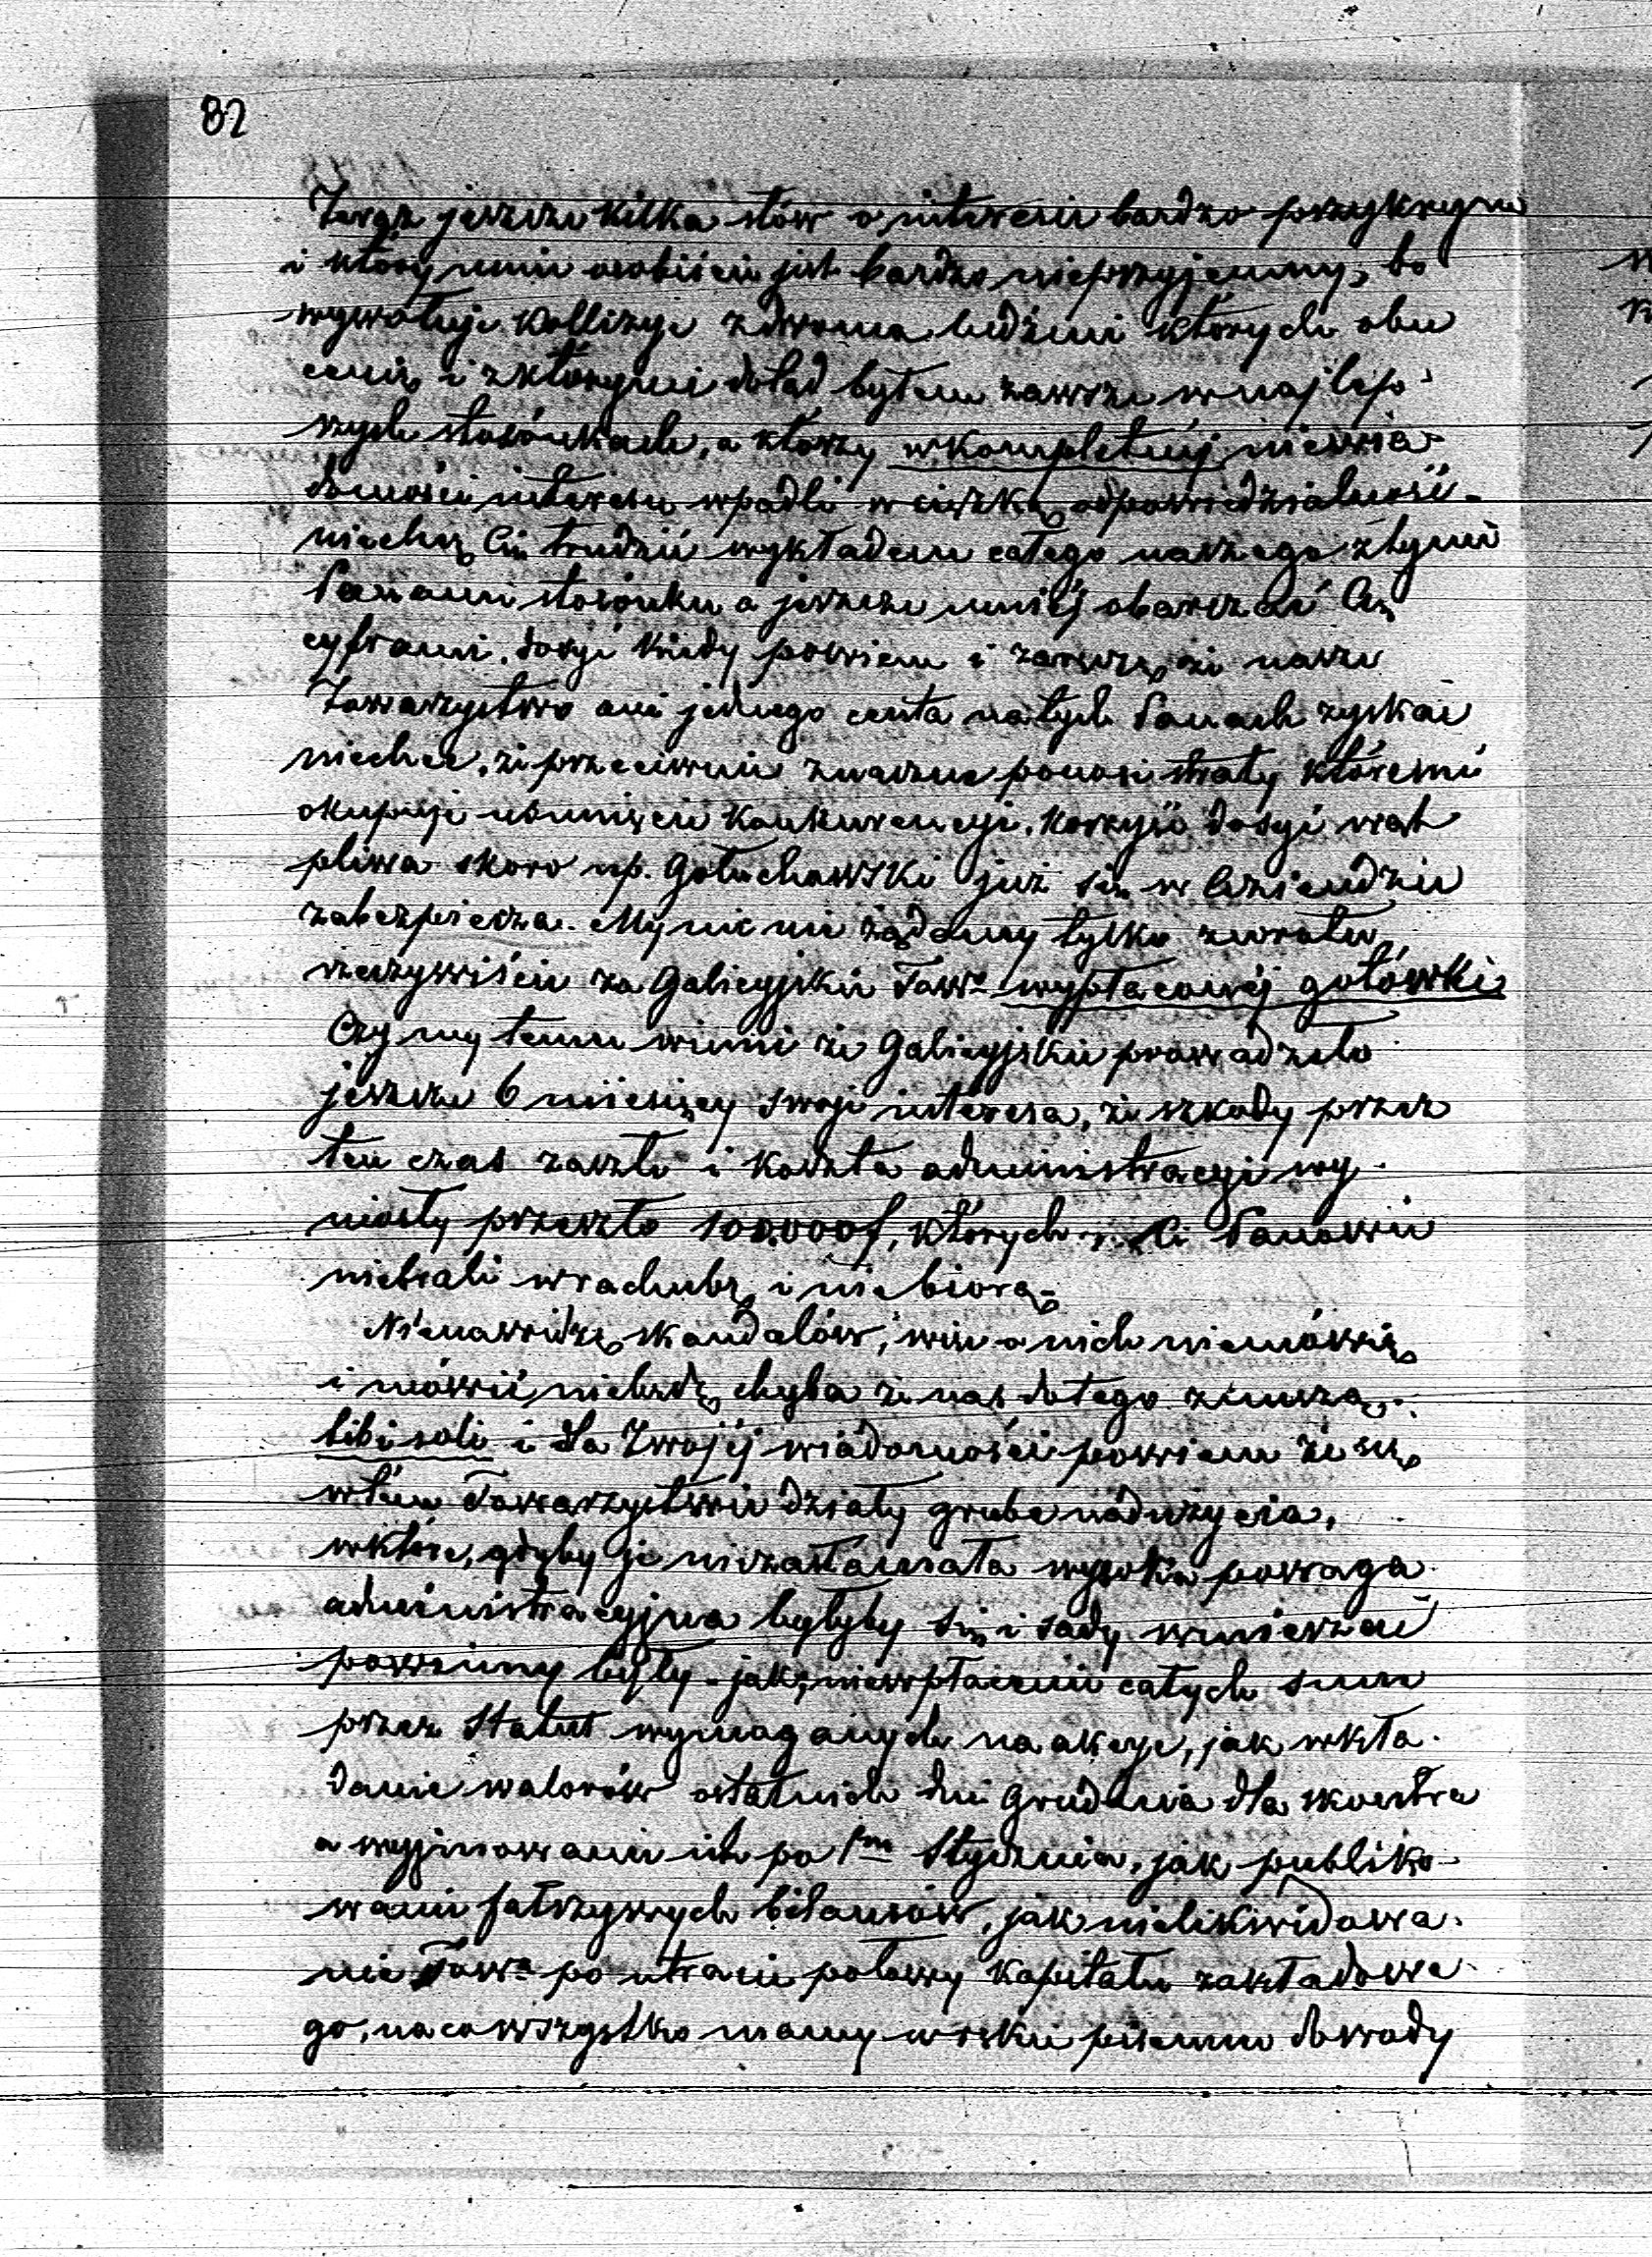 82
Teraz jeszcze kilka słów o interesie bardzo przykrym
i który mnie osobiście jest bardzo nieprzyjemny, bo
wywołuje kollizye z dwoma ludźmi których obu
cenię i z którymi dotąd byłem zawsze w najlep-
szych stosónkach, a którzy w kompletnéj niewia-
domości interesu wpadli w ciężką odpowiedzialność.
niechcę Cię trudzić wykładem całego naszego z tymi
Panami stosónku a jeszcze mniéj obarczać Cię
cyframi. dosyć kiedy powiem i zaręczę że nasze
Towarzystwo ani jednego centa na tych Panach zyskać
niechce, że przeciwnie znaczne ponosi straty któremi
okupuje usunięcie konkurencyi. korzyść dosyć wąt
pliwa skoro np. Gołuchowski już się w Aziendzie
zabezpiecza. My nic nie żądamy tylko zwrotu,
rzeczywiście za Galicyjskie Tow: wypłaconéj gotówki
Czy my temu winni że Galicyjskie prowadziło
jeszcze 6 miesięcy swoje interesa, że szkody przez
ten czas zaszłe i koszta administracyi wy-
niosły przeszło 100.000 f, których Ci Panowie
niebrali w rachubę i nie biorą.
Nienawidzę skandalów, więc o nich niemówię
i mówić niebędę chyba że nas do tego zmuszą.
tibi soli i dla Twojéj wiadomości powiem że się
w tém Towarzystwie działy grube nadużycia,
w które, gdyby je niezasłaniała wysoka powaga
administracyjna byłyby się i sądy wmieszać
powinny były. jak, niewpłacenie całych sum
przez Statut wymaganych na akcye, jak wkła-
danie walorów ostatnich dni Grudnia dla skontra
a wyjmowanie ich po 1m Stycznia, jak publiko-
wanie fałszywych bilansów, jak nielikwidowa-
nie Tow: po utracie połowy kapitału zakładowe
go, na co wszystko mamy w ręku pisemne dowody